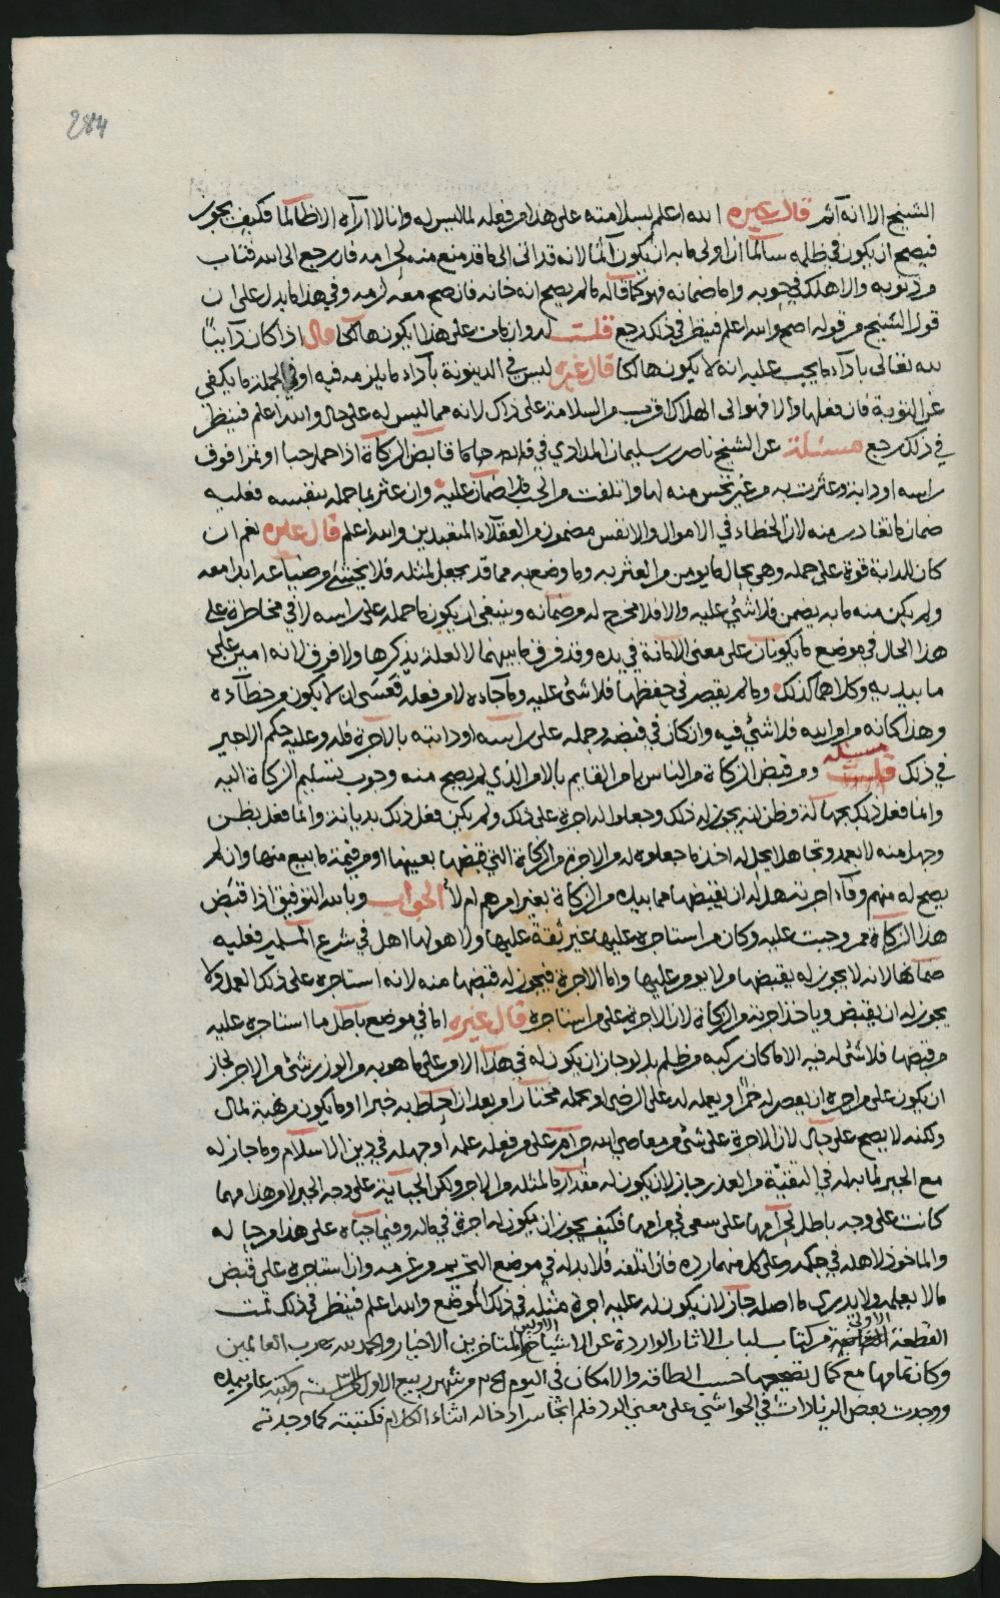 284
الشيخ الا انه آثم قال غيره الله اعلم بسلامته على هذا من فعله لما ليس له وانا لا اراه الا ظالما فكيف يجوز
فيصح ان يكون في ظلمه سالما ان اولى ما به ان يكون آثما لانه قد اتى الى ما قد منع منه لحرامه فان رجع الى الله فتاب
من ذنوبه والا هلك في حوبه واما ضمانه فهو كما قاله ما لم يصح انه خانه فان صح معه لزمه وفي هذا ما يدل على ان
قول الشيخ من قوله اصح والله اعلم فينظر في ذلك رجع قلت له وان مات على هذا ايكون هالكا قال اذا كان دائنا
لله تعالى بادآء ما يجب عليه انه لا يكون هالكا قال غيره ليس في الدينونة بأداء ما يلزمه فيه او في الجملة ما يكفي
عن التوبة فان فعلها والا فهو الى الهلاك اقرب من السلامة على ذاك لانه مما ليس له على حال والله اعلم فينظر
في ذلك رجع مسئلة عن الشيخ ناصر بن سليمان المدادي في قابض الزكاة اذا حمل حبا او تمرا فوق
راسه او دابته وعثرت به من غير نخس منه لها وانلفت من الحب فلا ضمان عليه وان عثر بما حمله بنفسه فعليه
ضمان ما تغادر منه لان الخطاء في الاموال والانفس مضمون من العقلآء المتعبدين والله اعلم قال غيره نعم ان
كان للدابة قوة على حمله وهي بحال ما يومن من العثر به وما وضع به مما قد يجعل لمثله فلا يخشى من ضياعه ابدا معه
ولم يكن منه ما به يضمن فلا شئ عليه والا فلا مخرج له من ضمانه وينبغي ان يكون ما حمله على راسه لا في مخاطرة على
هذا الحال في موضع ما يكونان على معنى الامانة في يده وقد فرق ما بينهما لا لعلة يذكرها ولا فرق لانه امين على
ما بيديه وكلاهما كذلك وما لم يقصر في حفظها فلا شئ عليه وما جاءه لا من فعله فعسى ان لا يكون من خطآءه
وهذا كانه من اورابيه فلا شئ فيه وان كان في قبضه وحمله على راسه او دابته بالاجرة فله وعليه حكم الاجير
في ذلك مسئلة ومن قبض الزكاة من الناس بامر القايم بالامر الذي لم يصح منه وجوب تسليم الزكاة اليه
وانما فعل ذلك بجهالة وظن انه يجوز له ذلك وجعلوا له اجرة على ذلك ولم يكن فعل ذلك بديانة وانما فعل بظن
وجهل منه لا بعمد وتجاهل ايحل له اخذ ما جعلوه له من الاجرة من الزكاة التي قبضها بعينها او من قيمة ما بيع منها وان لم
يصح له منهم وفآء اجرته هل له ان يقبضها مما بيده من الزكاة بغير امرهم ام لا الجواب وبالله التوفيق اذا قبض
هذا الزكاة ممن وجبت عليه وكان من استاجره عليها غير ثقة عليها ولا هو لها اهل في شرع المسلمين فعليه
ضمانها لانه لا يجوز له يقبضها من لا يومن عليها واما الاجرة فيجوز له قبضها منه لانه استاجره على ذلك العمل ولا
يجوز له ان يقبض وياخذ اجرته من الزكاة لان الاجرة على من استاجره قال غيره اما في موضع باطل ما استاجره عليه
من قبضها فلا شئ له فيه الا ما كان يركبه من ظلم بل لو جاز ان يكون له في هذا الامر على ما هو به من الوزر شئ من الاجر لجاز
ان يكون على من اجره ان يعصر له خمرا ويعمله له على الرضى او يحمله مختارا من بعد ان احاط به خبرا او ما يكون من هبة لمال
ولكنه لا يصح على حال لان الاجرة على شئ من معاصي الله حرام على من فعله علمه او جهله في دين الاسلام وما جاز له
مع الجبر لما به له في التقيّة من العذر جاز لان يكون له مقدار ما لمثله من الاجر ولكن الجباية على وجه الجبر لا من هذا مهما
كانت على وجه باطل لحرامها على من سعى في مرامها فكيف يجوز ان يكون له اجرة في ماله وفيما اجباه على هذا من جبا له
والماخوذ لاهله في حكمه وعلى كل منهما رده فان اتلفه فلا بد له في موضع التحريم من غرمه وان استاجره على قبض
ما لا يعلمه ولا يدري ما اصله جاز لان يكون له عليه اجرة مثله في ذلك الموضع والله اعلم فينظر في ذلك تمت
القطعة الاولى من كتاب لباب الاثار الواردة عن الاشياخ الاولين والمتاخرين الاخيار والحمد لله رب العالمين
وكان تمامها مع كمال تصحيحها حسب الطاقة والامكان في اليوم من شهر ربيع الاول وكتبه عامر بيده
ووجدت بعض الزيادات في الحواشي على معنى الرد فلم اتجاسر ادخاله اثناء الكلام فكتبته كما وجدته